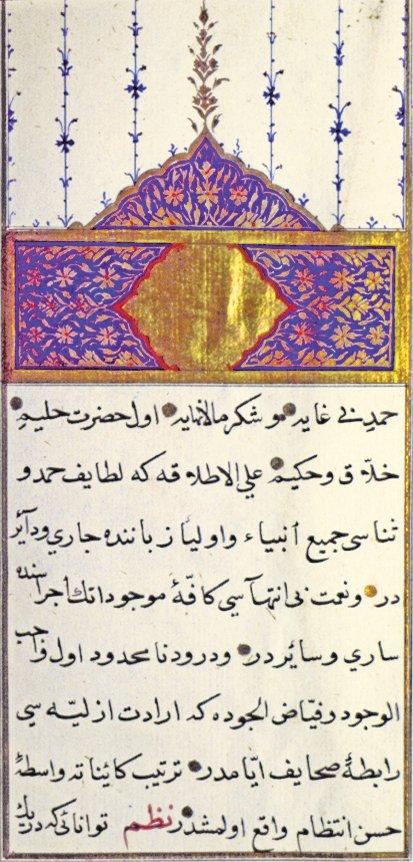 حمد بی غایه و شکر مالانهایه اول حضرت حلیم
خلاق و حکیم علی الاطلاقه که لطایف حمد و
ثناسی جمیع انبیاء و اولیا زباننده جاری و دائر
در و نعت بی انتهاسی کافۀ موجوداتك اجراسنده
ساری و سائر در و درود نامحدود اول واجب
الوجود فیاض الجوده که ارادت ازلیه سی
رابطۀ صحایف ایامدر ترتیب کائناته واسطۀ
حسن انتظام واقع اولمشدر نظم توانائی که دریك